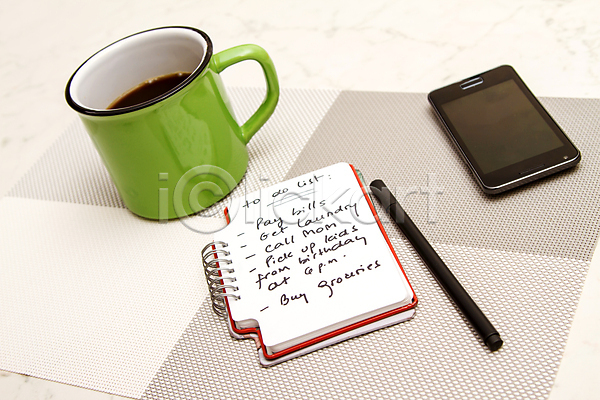 to do list:
- Pay bills
- Get laundry
- Call mom
- Pick up kids
from birthday
at 6 p.m.
- Buy groceries
iclickart